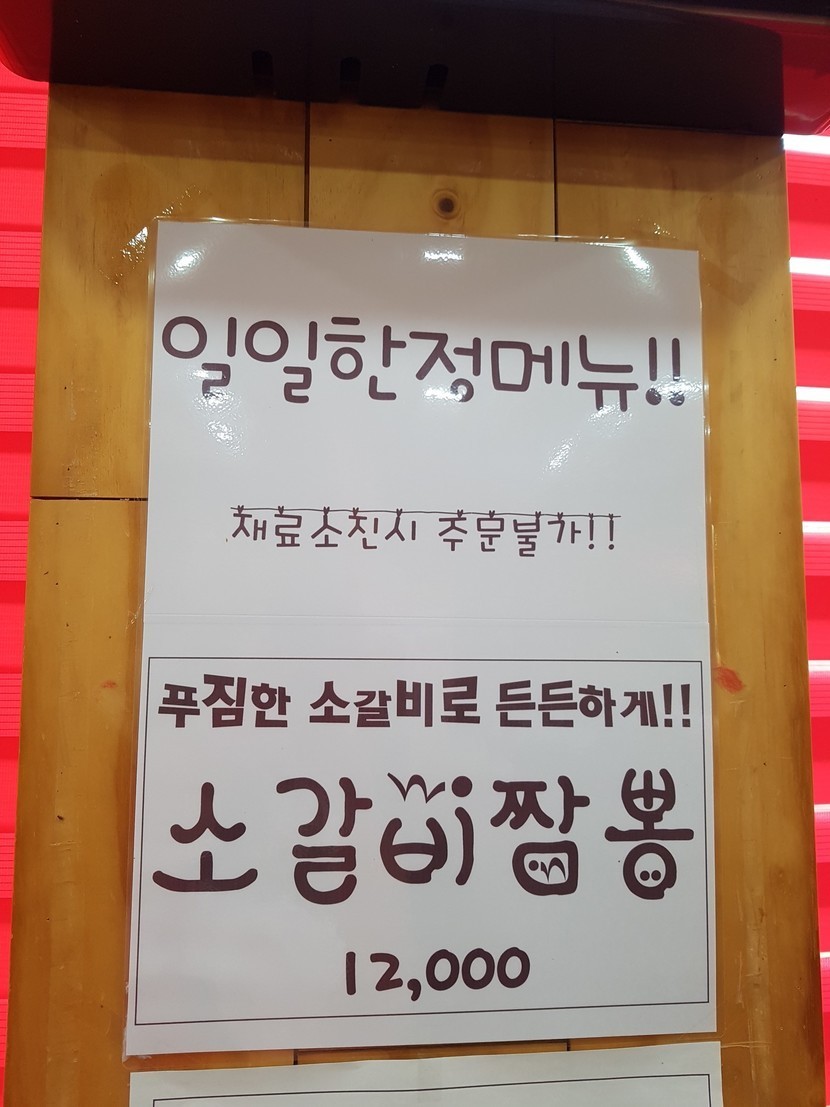 일일한정메뉴!!
재료소진시 주문불가!!
푸짐한 소갈비로 든든하게!!
소갈비짬뽕
12,000